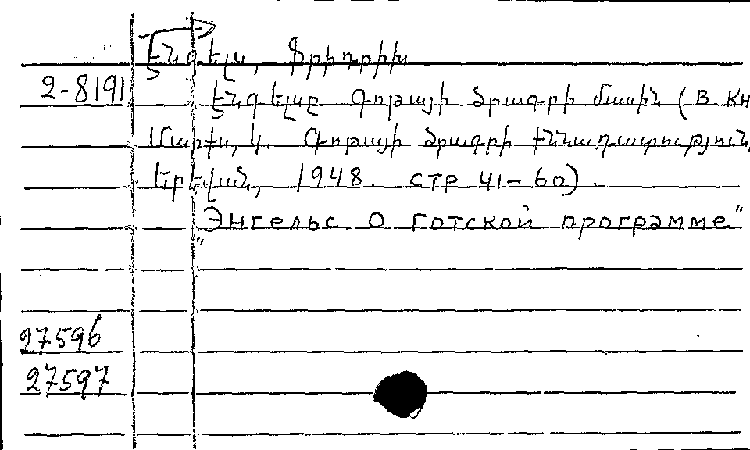 Էնգելս, Ֆրիդրիխ
2-8191 Էնգելսը Գոթայի ծրագրի մասին (в кн
Մարքս, Կ. Գոթայի ծրագրի քննադատություն,
Երևան, 1948. стр 41-60).
"Энгельс о Готской программе"
27596
27597